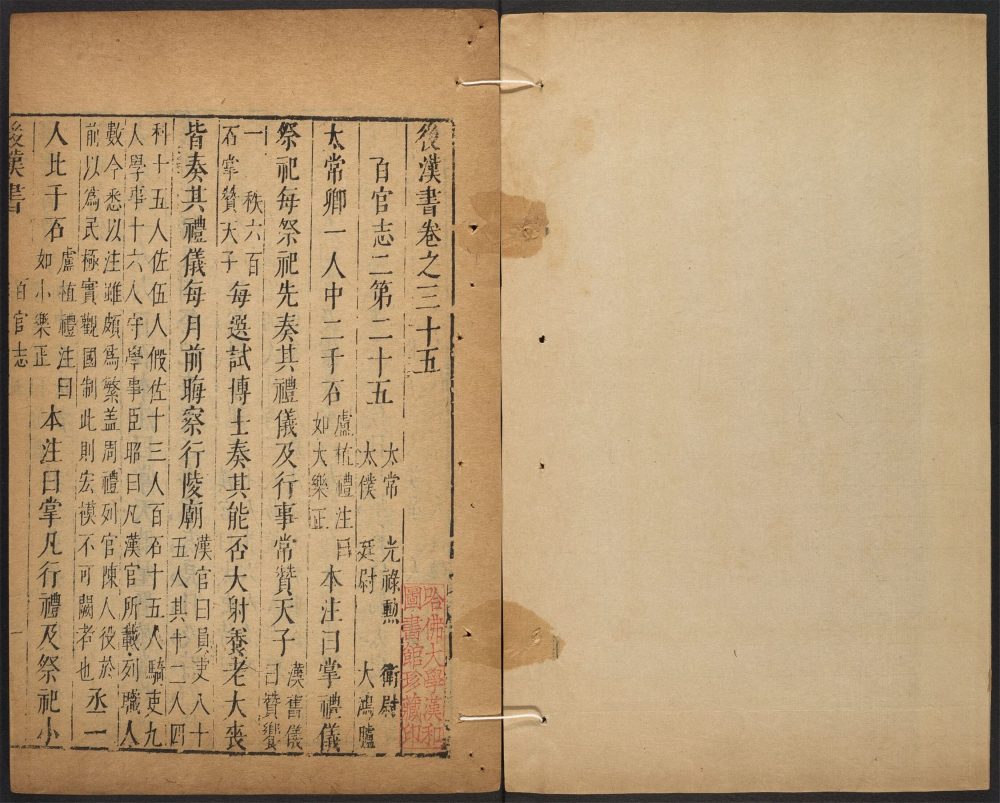 後漢書卷之三十五
百官志二第二十五
太常 光祿勲 衛尉
太僕 廷尉 大鴻臚
太常卿一人中二千石
盧植禮注曰
如大樂正
本注曰掌禮儀
祭祀每祭祀先奏其禮儀及行事常贊天子
漢舊儀
曰贊饗
一 秩六百
石掌贊天子
每選試博士奏其能否大射養老大喪
皆奏其禮儀每月前晦察行陵廟
漢官曰員吏八十
五人其十二人四
科十五人佐伍人假佐十三人百石十五人騎吏九
人學事十六人守學事臣昭曰凡漢官所載列職人
數今悉以注雖頗爲繁盖周禮列官陳人役於
前以爲民極實觀國制此則宏模不可闕者也
丞一
人比千石
盧植禮注曰
如小樂正
本注曰掌凡行禮及祭祀小
後漢書
百官志
一
哈佛大學漢和
圖書館珍藏印